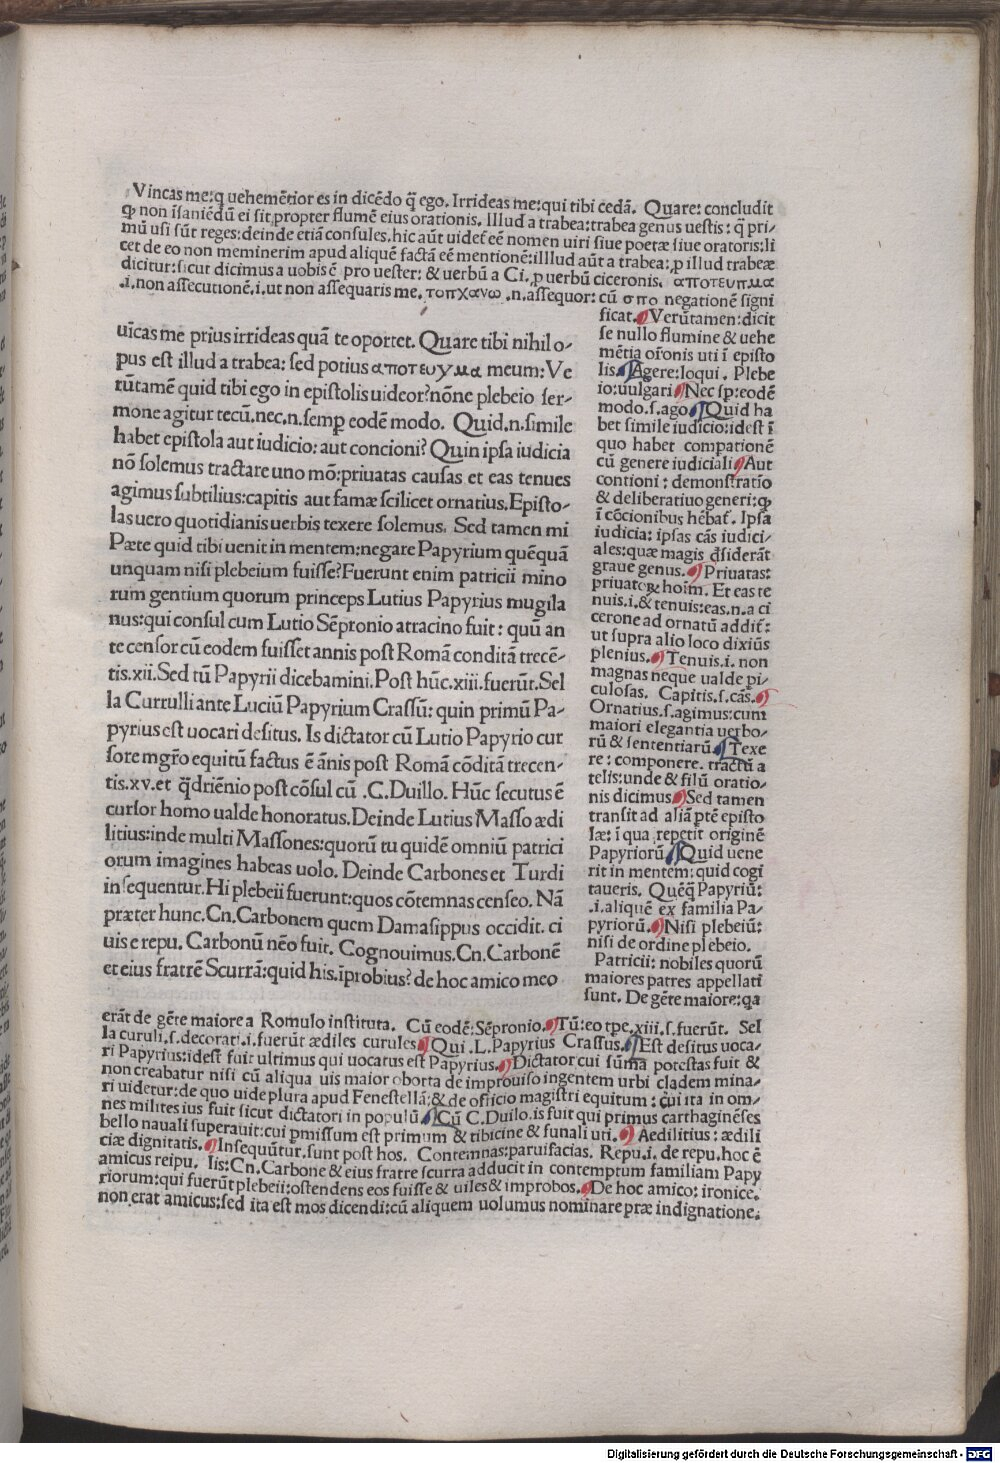 Vincas me:q uehemētior es in dicēdo q̄ ego. Irrideas me:qui tibi cedā. Quare: concludit
ꝙ non īsaniēdū ei sit,propter flumē eius orationis. Illud a trabea:trabea genus uestis: q̄ pri/
mū usi sūt reges:deinde etiā consules.hic aūt uidet̄ eē nomen uiri siue poetæ siue oratoris:li
cet de eo non meminerim apud aliquē factā eē mentionē:illud aūt a trabea:ꝓ illud trabeæ
dicitur:sicut dicimus a uobis ē pro uester: & uerbū a Ci.ꝓ uerbū ciceronis. αποτευπμα
.i.non assecutionē.i.ut non assequaris me. τοπχανω .n.assequor: cū σπο negationē signi
ficat. Verūtamen:dicit
se nullo flumine & uehe
mētia or̄onis uti ī episto
lis. Agere:loqui. Plebe
io:uulgari Nec sꝑ:eodē
modo.s.ago Quid ha
bet simile iudicio:idest ī
quo habet compationē
cū genere iudiciali Aut
contioni: demonstratīo
& deliberatiuo generi:ꝙ
ī cōcionibus hēbat̄. Ipsa
iudicia: ipsas cās iudici/
ales:quæ magis dsiderāt
graue genus. Priuatas:
priuatoꝝ hoīm. Et eas te
nuis.i.& tenuis:eas.n.a ci
cerone ad ornatū addit̄:
ut supra alio loco dixiūs
plenius. Tenuis.i. non
magnas neque ualde pi/
culosas. Capitis.s.cās.
Ornatius.s.agimus:cum
maiori elegantia uerbo/
rū & sententiarū. Texe
re: componere. tractū a
telis:unde & filū oratio/
nis dicimus Sed tamen
transit ad aliā ptē episto
læ: ī qua repetit originē
Papyriorū Quid uene
rit in mentem:quid cogi
taueris. Quēq̄ Papyriū:
.i.aliquē ex familia Pa/
pyriorū. Nisi plebeiū:
nisi de ordine plebeio.
Patricii: nobiles quorū
maiores patres appellati
sunt. De gēte maiore:qa
uīcas me prius irrideas quā te oportet. Quare tibi nihil o/
pus est illud a trabea: sed potius αποτευγμα meum:Ve
rūtamē quid tibi ego in epistolis uideor?nōne plebeio ser/
mone agitur tecū.nec.n.semꝑ eodē modo. Quid.n.simile
habet epistola aut iudicio: aut concioni? Quin ipsa iudicia
nō solemus tractare uno mō:priuatas causas et eas tenues
agimus subtilius:capitis aut famæ scilicet ornatius.Episto/
las uero quotidianis uerbis texere solemus. Sed tamen mi
Pæte quid tibi uenit in mentem:negare Papyrium quēquā
unquam nisi plebeium fuisse?Fuerunt enim patricii mino
rum gentium quorum princeps Lutius Papyrius mugila
nus:qui consul cum Lutio Sēpronio atracino fuit: quū an
te censor cū eodem fuisset annis post Romā conditā trecē/
tis.xii.Sed tū Papyrii dicebamini.Post hūc.xiii.fuerūt.Sel
la Currulli ante Luciū Papyrium Crassū: quin primū Pa/
pyrius est uocari desitus. Is dictator cū Lutio Papyrio cur
sore mgr̄o equitū factus ē ānis post Romā cōditā trecen/
tis.xv.et q̄driēnio post cōsul cū .C.Duillo. Hūc secutus ē
cursor homo ualde honoratus.Deinde Lutius Masso ædi
litius:inde multi Massones:quorū tu quidē omniū patrici
orum imagines habeas uolo. Deinde Carbones et Turdi
insequentur.Hi plebeii fuerunt:quos cōtemnas censeo. Nā
præter hunc.Cn.Carbonem quem Damasippus occidit. ci
uis e repu. Carbonū nēo fuit. Cognouimus.Cn.Carbonē
et eius fratrē Scurrā:quid his.īprobius? de hoc amico meo
erāt de gēte maiore a Romulo instituta. Cū eodē:Sēpronio. Tū:eo tpe.xiii.s.fuerūt. Sel
la curuli.s.decorati.i.fuerūt ædiles curules Qui .L.Papyrius Crassus. Est desitus uoca/
ri Papyrius:idest fuit ultimus qui uocatus est Papyrius. Dictator cui sūma potestas fuit &
non creabatur nisi cū aliqua uis maior oborta de improuiso ingentem urbi cladem mina/
ri uidetur:de quo uide plura apud Fenestellā:& de officio magistri equitum: cui ita in om/
nes milites ius fuit sicut dictatori in populū Cū C.Duilo.is fuit qui primus carthaginēses
bello nauali superauit:cui pmissum est primum & tibicine & funali uti. Aedilitius: ædili
ciæ dignitatis. Insequūtur.sunt post hos. Contemnas:paruifacias. Repu.i. de repu.hoc ē
amicus reipu. Iis:Cn.Carbone & eius fratre scurra adducit in contemptum familiam Papy
riorum:qui fuerūt plebeii:ostendens eos fuisse & uiles & improbos. De hoc amico: ironice.
non erat amicus:sed ita est mos dicendi:cū aliquem uolumus nominare præ indignatione.
Digitalisierung gefördert durch die Deutsche Forschungsgemeinschaft - DFG